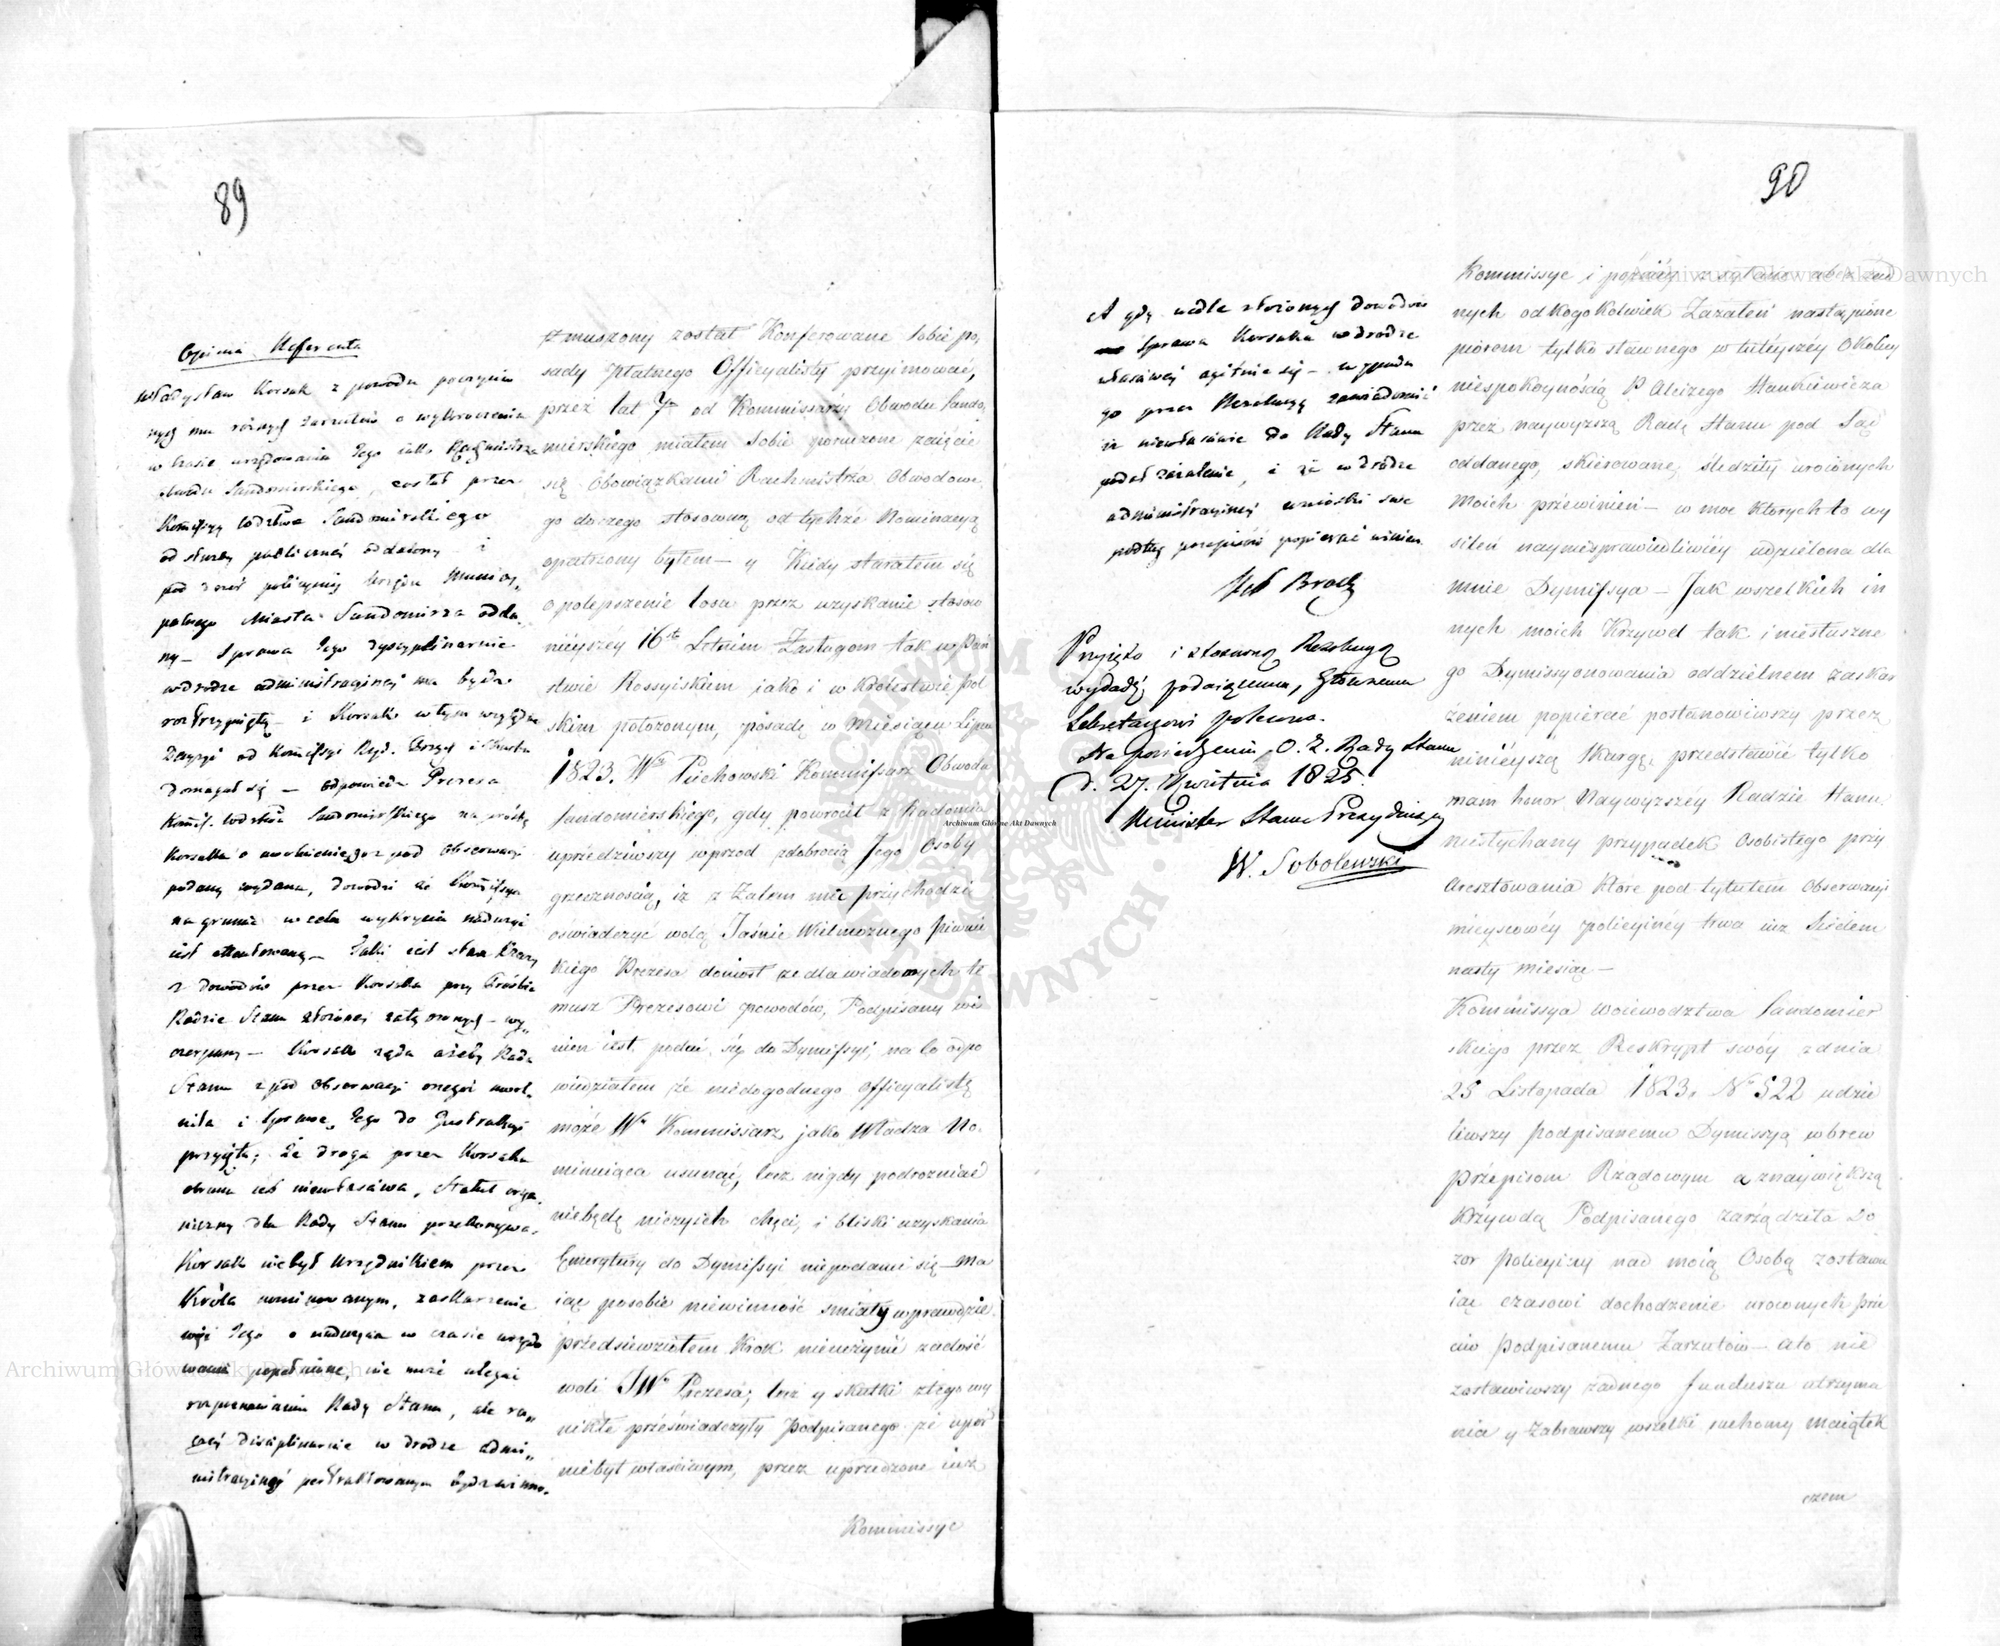 89
Opinia Referenta
Władysław Korsak z powodu poczynio
nych mu różnych zarzutów o wykroczenia
w czasie urzędowania Jego jako Rachmistrza
obwodu Sandomierskiego, został przez
Kommissyą Wództwa Sandomirskiego
od służby publicznéj oddalony i
pod dozór policyiny Urzędu Munici„
palnego Miasta Sandomirza odda„
ny — Sprawa Jego dyscyplinarnie
w drodze administracyinej ma bydź
rozstrzygniętą — i Korsak w tym względzie
Decyzyi od Kommissyi Rząd. Przych i Skarbu
domagał się — odpowiedź Prezesa
Kommis. Wództwa Sandomirskiego na prośbę
Korsaka o uwolnienie go z pod obserwacyi
podaną wydana, dowodzi że Kommissya
na gruncie w celu wykrycia nadużyć
jest
Taki jest stan Rzeczy
z dowodów przez Korsaka przy Prośbie
Radzie Stanu złożonéj załączonych — wy„
czerpany — Korsak żąda ażeby Rada
Stanu z pod obserwacyi onegoż uwol„
niła i sprawę Jego do
przyięła; Że droga przez Korsaka
obrana jest niewłaściwa, Statut orga„
niczny dla Rady Stanu przekonywa.
Korsak niebył Urzędnikiem przez
Króla nominowanym, zaskarżenie
więc Jego o nadużycia w czasie urzędo
wania popełnione, nie może ulegać
rozpoznawaniu Rady Stanu, ale ra„
czéj disciplinarnie w drodze admi„
nistracyinéj pertraktowanym bydź winno.
zmuszony został Konferowane sobie po„
sady Płatnego Officyalisty przyimować,
przez lat 7 od Kommissarzy Obwodu Sando„
mierskiego miałem sobie poruczone zaięcie
się Obowiązkami Rachmistrza Obwodowe„
go do czego stosowną od tychże Nominacyą
opatrzony byłem — y Kiedy starałem się
o polepszenie losu przez uzyskanie stosow
nieyszéy 16sto Letnim Zasługom tak w Pań
stwie Rossyiskiem jako i w Królestwie Pol
skim położonym, posady w Miesiącu Lipcu
1823. Wny Puchowski Kommissarz Obwodu
Sandomierskiego, gdy powrócił z Radomia
uprzedziwszy wprzód z dobrocią Jego Osoby
grzecznością, iż z żalem mu przychodzi
oświadczyć wolą Jaśnie Wielmożnego Piwnic
kiego Prezesa doniosł że dla wiadomych te
muż Prezesowi powodów, Podpisany wi
nien iest podać się do Dymissyi, na co odpo
wiedziałem że niedogodnego officyalistę
może Wny Kommissarz jako Władza No„
minuiąca usunąć, lecz nigdy podrożniać
niebędę niczyich chęci, i bliski uzyskania
Emerytury do Dymissyi niepodam się — Ma
iąc po sobie niewinność śmiały wprawdzie
przedsiewziołem Krok nieuczynić zadość
woli JWo Prezesa, lecz y skutki złego wy
nikłe przeświadczyły Podpisanego że upór
niebył właściwym, przez uprzedzone iuż
Kommissye
90
A gdy wedle złożonych dowodów
Sprawa Korsaka w drodze
właściwéj agituie się — wypada
go przez Rezolucyą zawiadomić
iż niewłaściwie do Rady Stanu
podał zażalenie, i że w drodze
administracyinéj wnioski swe
podług przepisów popierać winien.
Ref Brodz
Przyięto i stosowną Rezolucyą
wydadź podaiącemu, Głównemu
Sekretarzowi polecono.
Na posiedzeniu O. Z. Rady Stanu
d. 27. Kwietnia 1825.
Minister Stanu Prezyduiący
W. Sobolewski
Kommissye i poźniéy zesłane a bez żad
nych od kogokolwiek Zażaleń nastąpione
piórem tylko sławnego w tuteyszéy Okolicy
niespokoynością P Aloizego Stankiewicza
przez naywyższą Radę Stanu pod Sąd
oddanego, skierowane, śledziły uroionych
Moich przewinień — w moc których to wy
śleń nayniesprawiedliwiéy udzielona dla
mnie Dymissya — Jak wszelkich in
nych moich Krzywd tak i niesłuszne
go Dymissyonowania oddzielnem zaskar
żeniem popierać postanowiwszy przez
ninieyszą Skargę, przedstawić tylko
mam honor Naywyższéy Radzie Stanu
niesłychany przypadek Osobistego przy
aresztowania Które pod tytułem Obserwacyi
mieyscowéy policyinéy trwa iuż Siedem
nasty miesiąc —
Kommissya Woiewodztwa Sandomier
skiego przez Reskrypt swóy z dnia
25 Listopada 1823. No 522 udzie
liwszy Podpisanemu Dymissyą wbrew
Przepisom Rządowym a z naywiększą
Krzywdą Podpisanego zarządziła Do
zór Policyiny nad moią Osobą zostawu
iąc czasowi dochodzenie uroionych prze
ciw Podpisanemu Zarzutów — ato nie
zostawiwszy żadnego Funduszu utrzyma
nia y Zabrawszy wszelki ruchomy Maiątek
czem
Archiwum Główne Akt Dawnych
Archiwum Główne Akt Dawnych
Archiwum Główne Akt Dawnych
ARCHIWUM GŁÓWNE AKT DAWNYCH